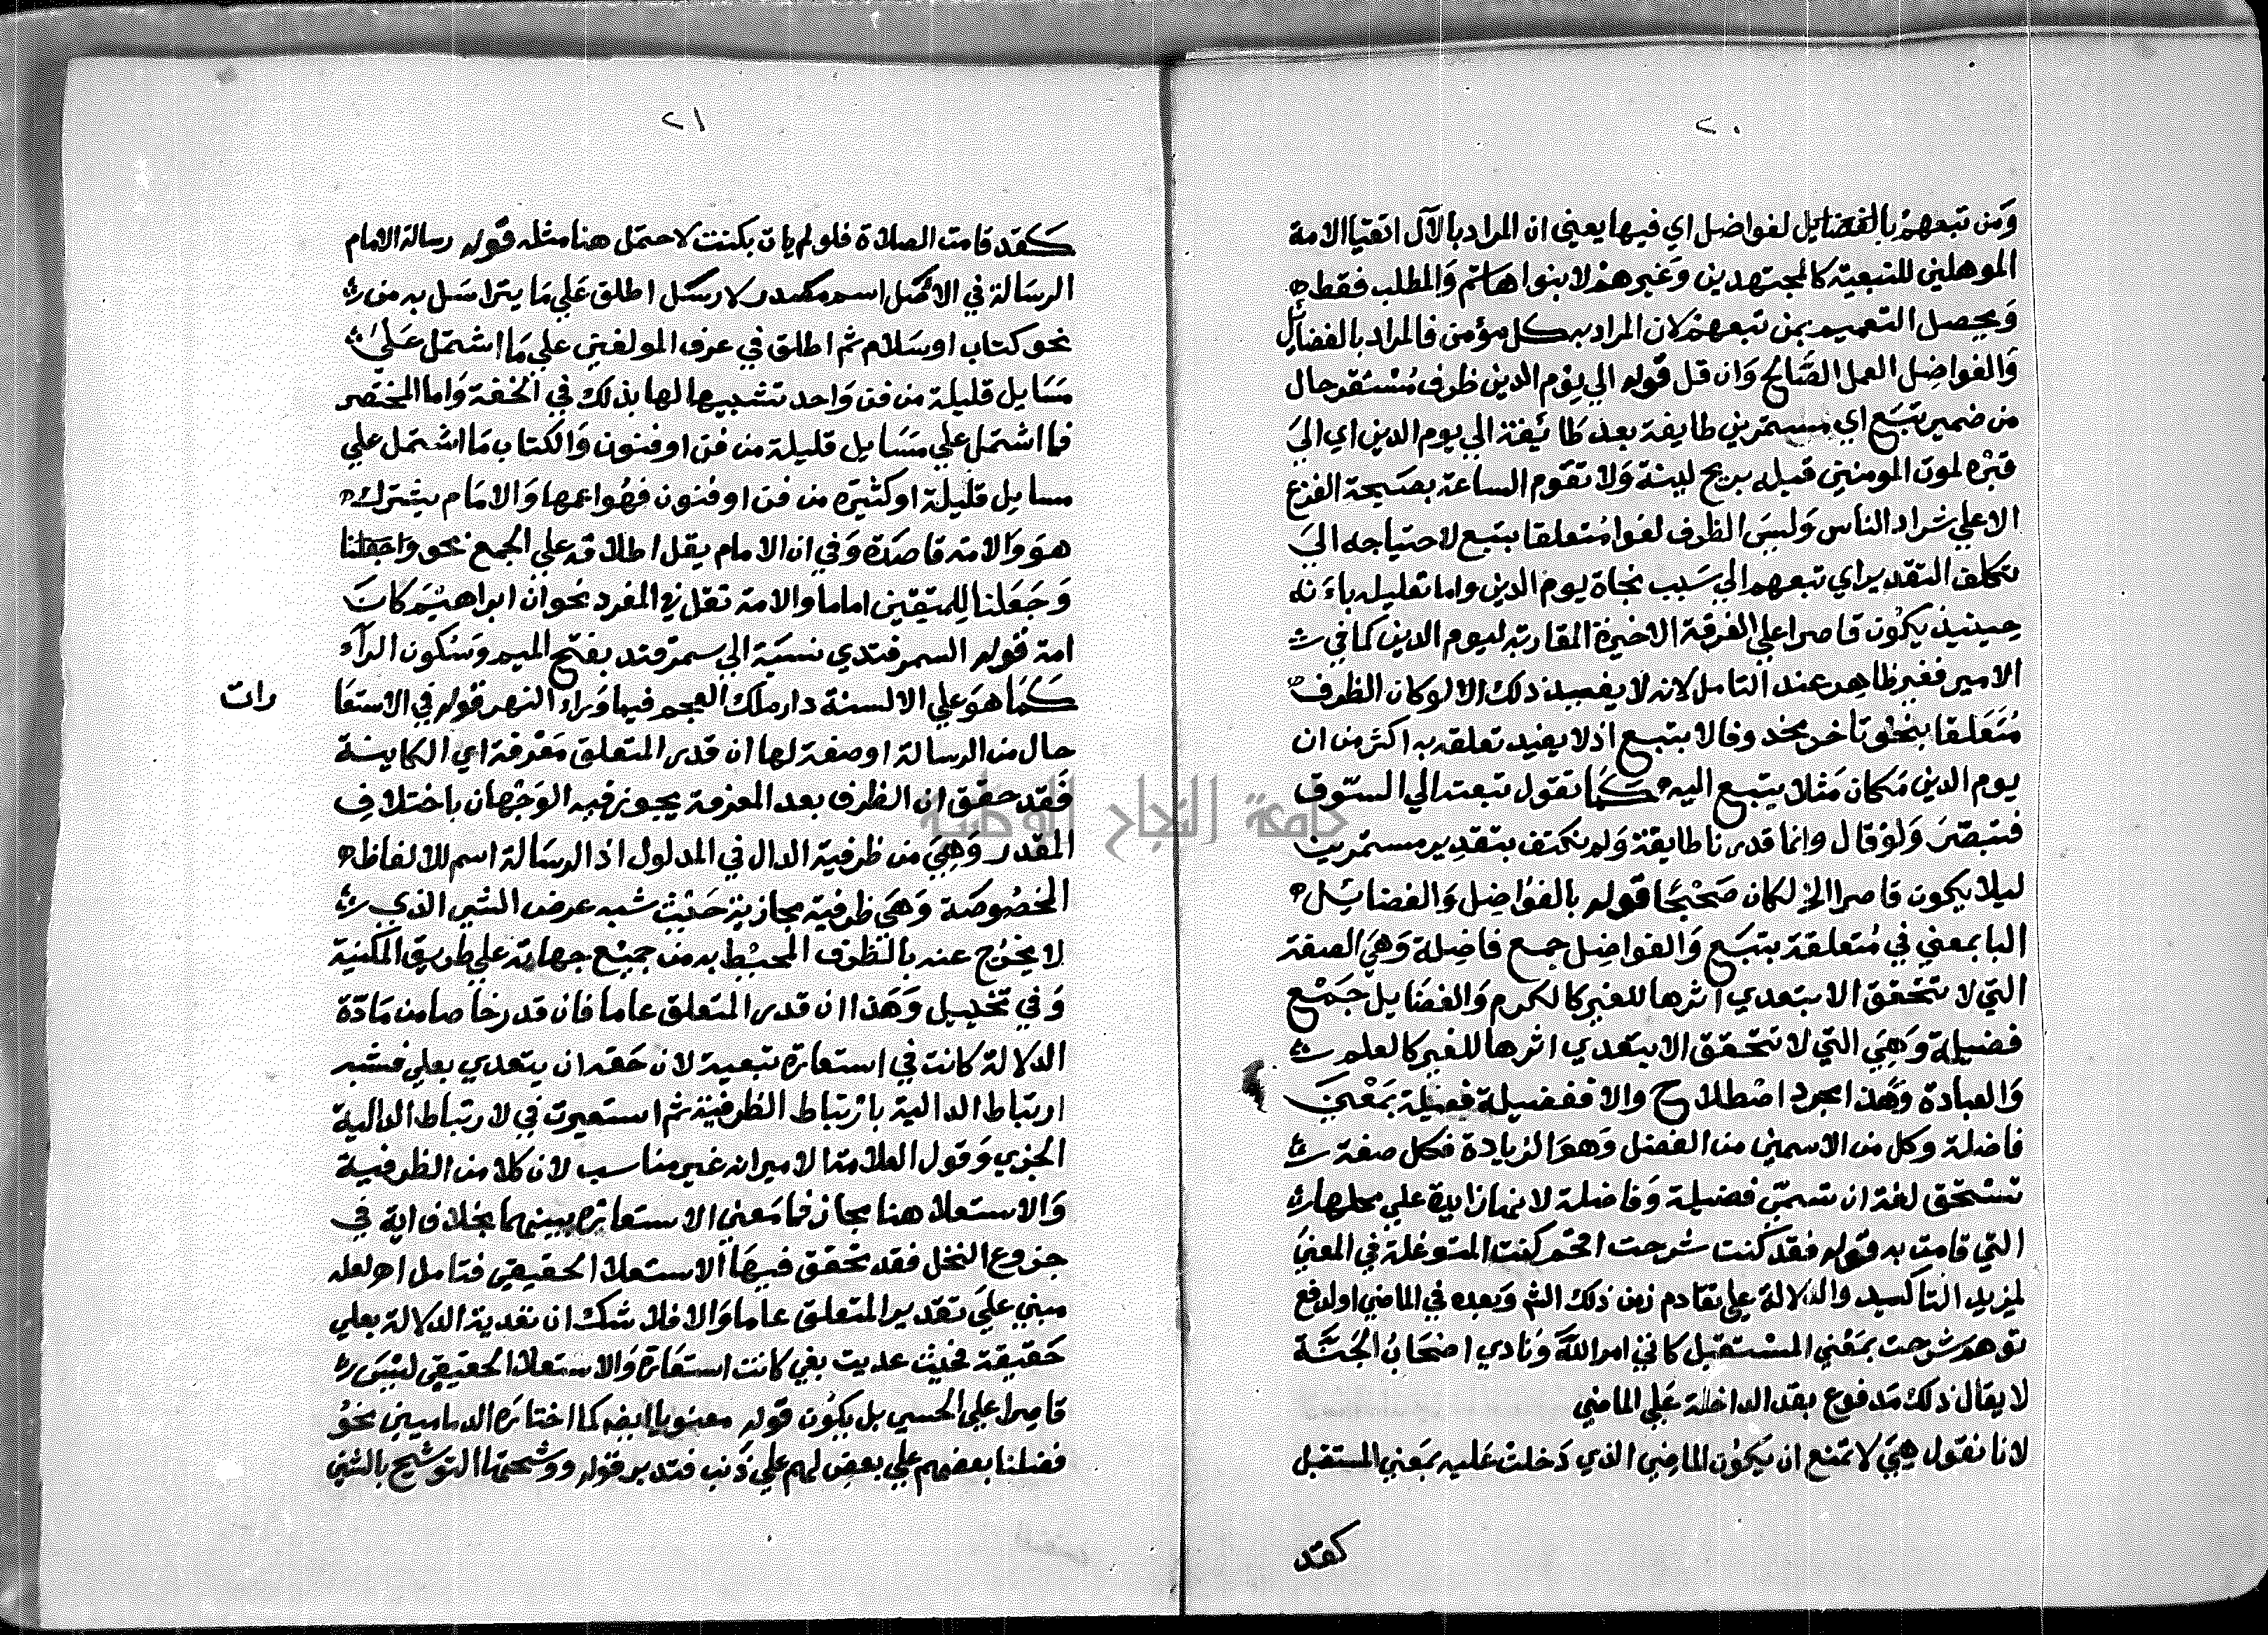 ٢٠
وَمن تبعهم بالفضايل لفواضل اي فيها يعني ان المراد بالآل اتقيا الامة
الموهلين للتبعية كالمجتهدين وَغيرهم لا بنوا هاشم وَالمطلب فقط
وَيحصل التعميم بمن تبعهم لان المراد به كل مؤمن فالمراد بالفضايل
وَالفواضِل العمل الصَّالح وَان قل قوله الي يوم الدين ظرف مُسْتقر حال
من ضمير تبَع اي مستمرين طايفة بعد طائفة الي يوم الدين اي اليَ
قبْره لموت المومنين قبله بريح لينة وَلا تقوم الساعة بصَيحة الفزع
الا علي شرار الناس وَليسَ الظرف لغوا مُتعلقا بتبع لاحتياجه اليَ
تكلف التقدير اي تبعهم الي سَبب نجاة يوم الدين واما تعليله باءَنه
حينيذ يكون قاصرا علي الفرقة الاخيرة المقاربة ليوم الدين كما في
الامير فغير ظاهر عند التامل لانه لا يفيد ذلك الا لو كان الظرف
مُتَعَلقا بنحْو تأخر محذوفا لا بتبع اذ لا يفيد تعلقه به اكثر من ان
يوم الدين مَكان مَثلا يتبع اليه كما تقول تبعته الي السّوق
فتبصّرَ وَلوْ قال وانما قدرنا طايفة وَلم نكتف بتقدير مستمرين
ليلا يكون قاصرا الخ لكان صَحْيحًا قوله بالفواضِل وَالفضايل
البا بمعني في مُتعلقة بتبَع وَالفواضِل جمع فاضِلة وَهيَ الصفة
التي لا تتحقق الا بتعدي اثرها للغير كالكرم وَالفضَايل جَمْع
فضيلة وَهيَ التي لا تتحقق الا بتعدي اثرها للغير كالعلم
وَالعبادة وَهَذا مجرد اصْطلاح والا ففضيلة فعيلة بمَعْنيَ
فاضلة وكل من الاسمين من الفضل وَهوَ الزيادة فكل صفة
تسْتحق لغة ان تسَمّيَ فضيلة وَفاضلة لانها زايدة علي محلها
التي قامت به قوله فقد كنت شرحت اقحم كنت المتوغلة في المعنيَ
لمزيد التاكيد والدلالة علي تقادم زمن ذلك الشم وَبعده في الماضي او لدفع
توهم شرحت بمَعْني المسْتقبل كاتي امر اللهَ وَنادي اصْحَابُ الجَنَّة
لا يقال ذلك مَدفوع بقد الداخلة عَلي الماضي
لانا نقول هِيَ لا تمنع ان يَكوُن الماضِي الذي دَخلت عَليه بمَعني المستقبل
كقد
٢١
كقد قامت الصلاة فلو لم يات بكنت لاحتمل هنا مثله قوله رسالة الامام
الرسَالة في الاصْل اسم مصدر لارسَل اطلق عَلي مَا يتراسَل به من
نحو كتاب او سَلام ثم اطلق في عرف المولفين علي مَا اشتمَل عَليَ
مَسَايل قليلة من فن وَاحد تشبيها لها بذلك في الخفة وَاما المختصَر
فما اشتمل علي مَسَايل قليلة من فن او فنون وَالكتاب مَا اشتمل علي
مسايل قليلة او كثيَره من فن او فنون فهُو اعمها وَالامَام يشترك
هوَ وَالامة قاصدة وَفي ان الامام يقل اطلاقه علي الجمع نحو واجعلنا
وَجَعَلنا للمتقين اماما والامة تقل في المفرد نحو ان ابراهيْم كانَ
امة قوله السمرقندي نسبَة الي سمرقند بفتح الميم وَسُكون الرآء
كَمَا هوَ علي الالسنة دار ملك العجم فيما وَرآء النهر قوله في الاستعا
رات
حال من الرسالة او صفة لها ان قدر المتعلق مَعْرفة اي الكاينَة
فَقد حقق ان الظرف بعد المعرفة يجوز فيه الوَجْهان باختلافِ
المقدر وَهيَ من ظرفية الدال في المدلول اذ الرسَالة اسم للالفاظ
المخصُوصَة وَهيَ ظرفية مجازية حَيْث شبه عرض الشي الذي
لا يخرُج عنه بالظرف المحيْط به من جميْع جهاته علي طريق المكنية
وَفي تخييل وَهَذا ان قدر المتعلق عاما فان قدر خاصا من مَادّة
الدلالة كانت في استعارة تبعية لان حَقه ان يتعدي بعلي فشبه
ارتباط الدالية بارْتباط الظرفية ثم استعيرت في لارتباط الدالية
الجزي وَقول العلامة الامير انه غير مناسب لان كلا من الظرفية
وَالاستعلا هنا مجاز فما مَعني الاستعارة بينهما بخلاف اية في
جذوع النخل فقد تحقق فيهَا الاستعلا الحقيقي فتامل اهـ لعله
مبني عليَ تقدير المتعلق عاما وَالا فلا شك ان تعدية الدلالة بعلي
حَقيقة فحيْث عديت بفي كانت استعَارة وَالاستعلا الحقيقي ليْسَ
قاصِرا علي الحسي بل يكوُن قوله معنويا ايضه كما اختارَه الدماميني نحوُ
فضلنا بعضهم علي بعضٍ لهم علي ذَنب فتدبر قوله ووشحتها التوشيح بالشين